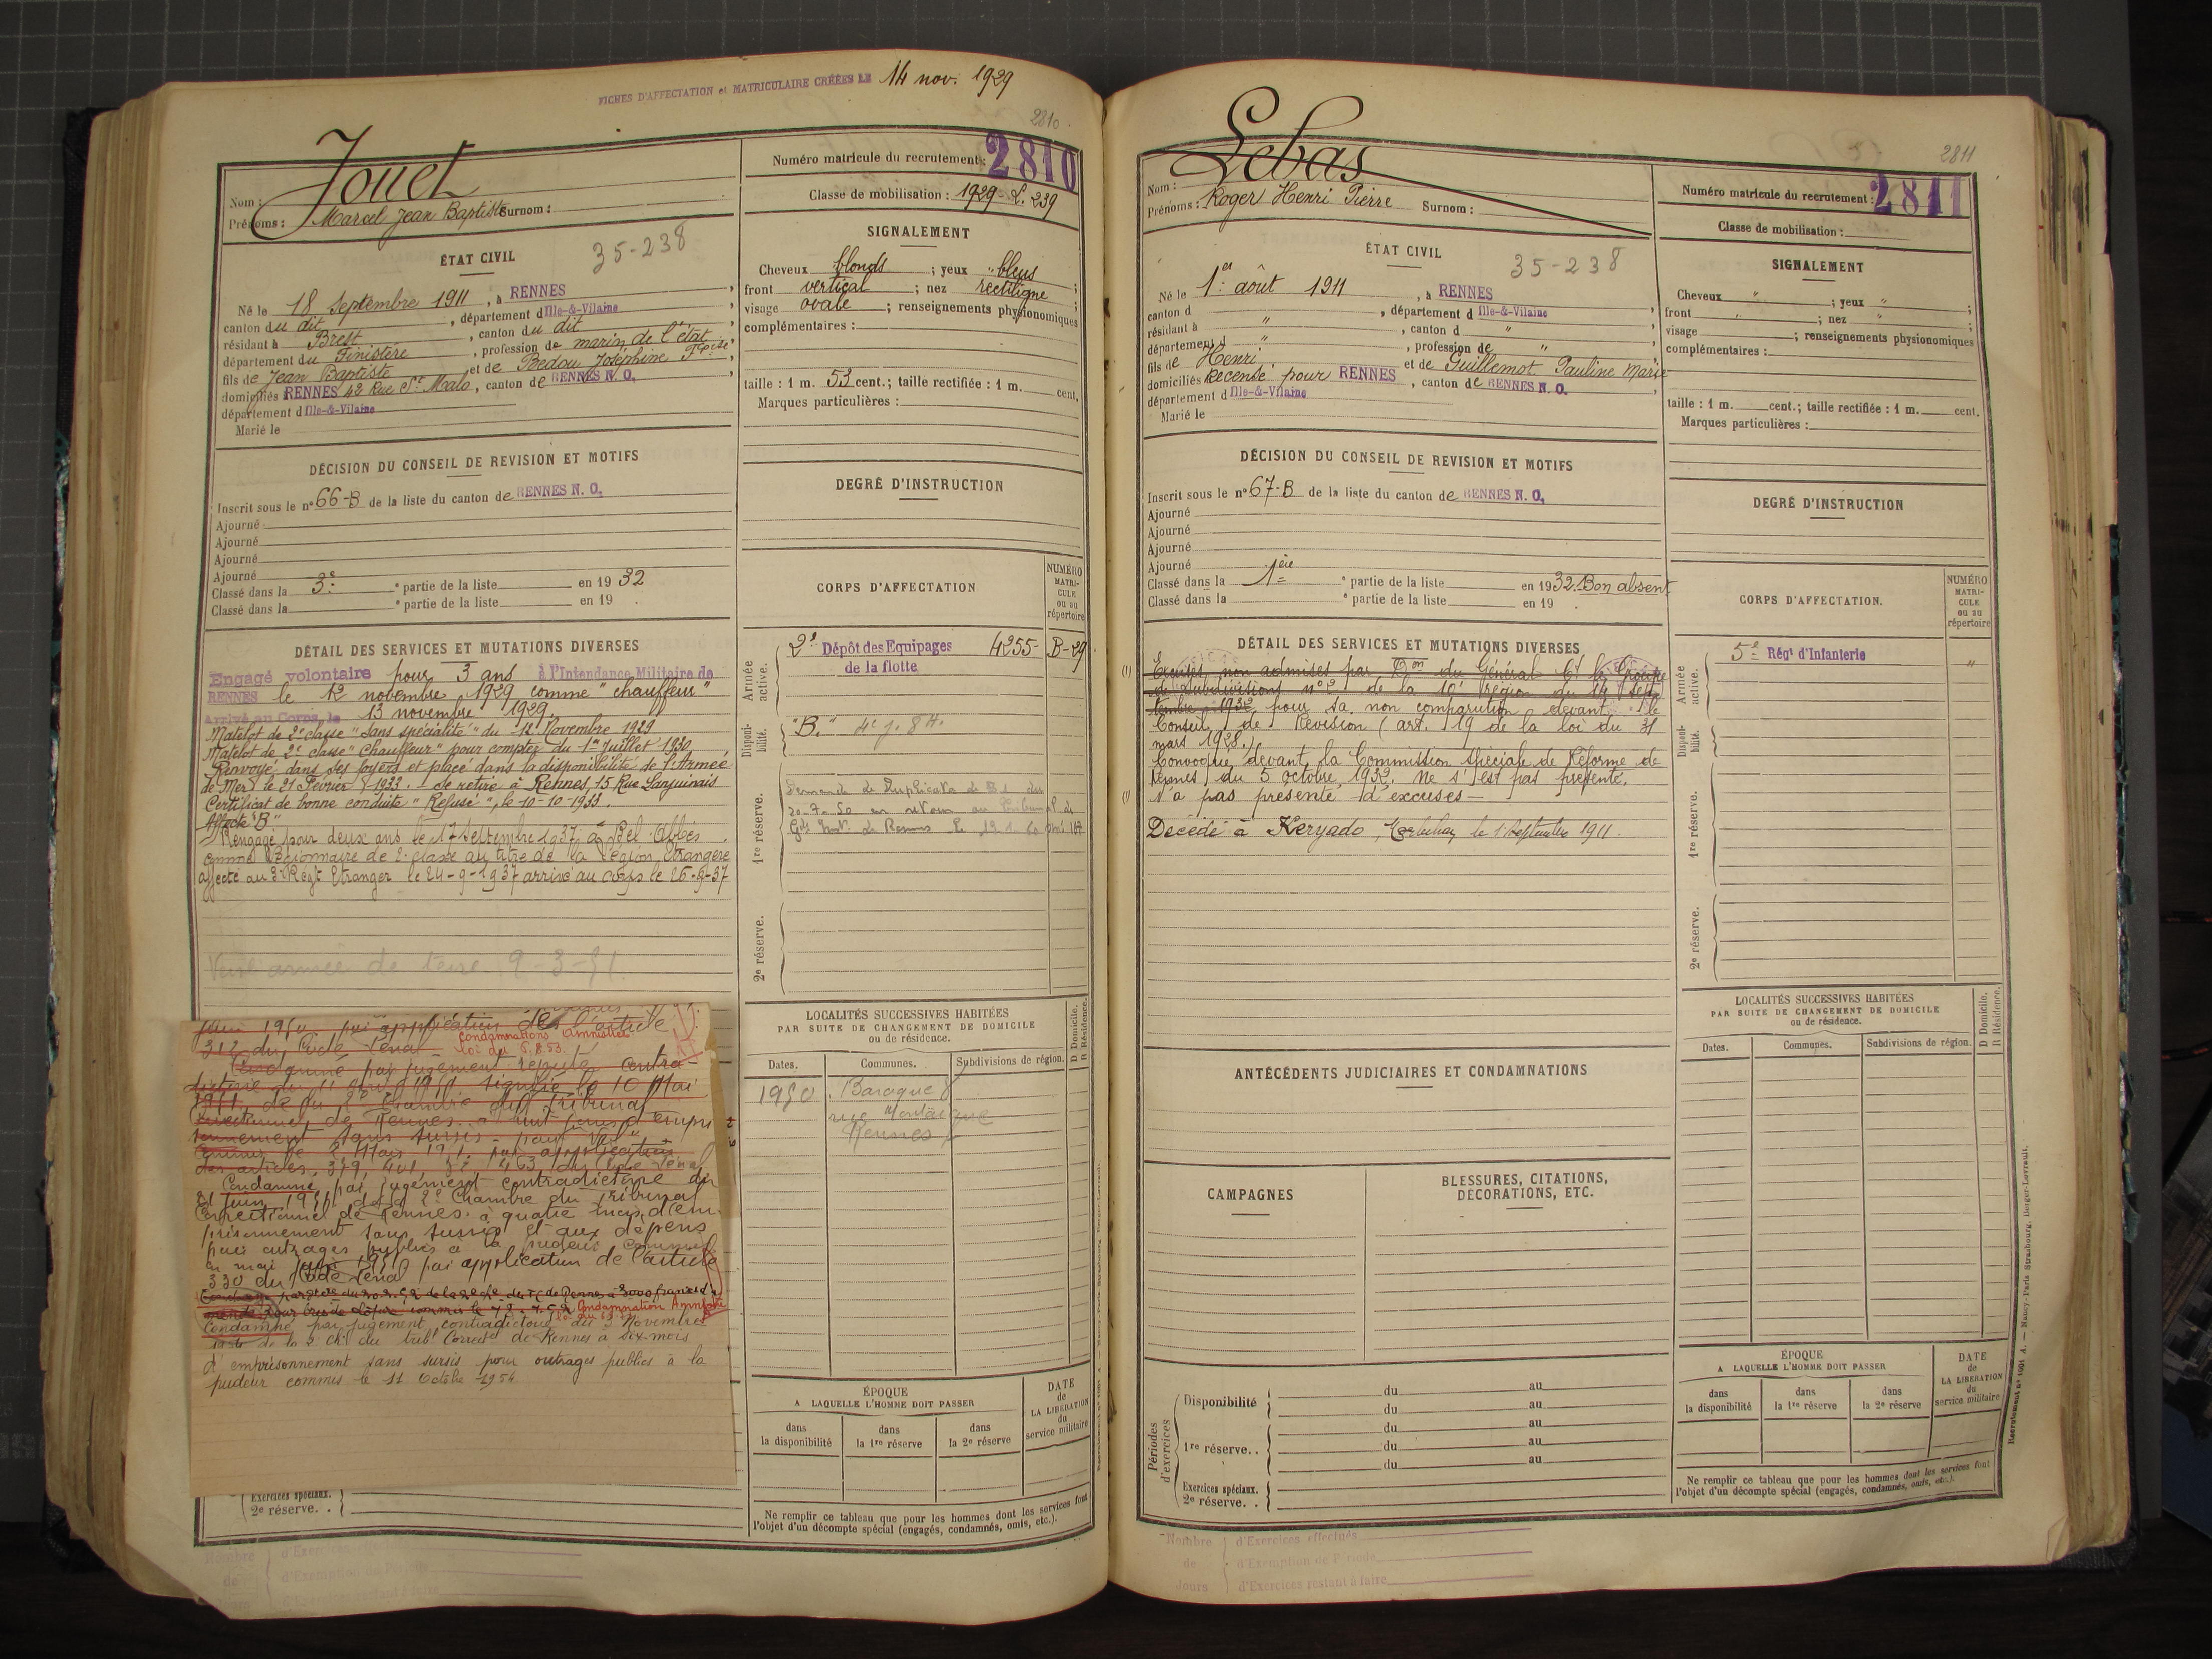 FICHES D'AFFECTATION et MATRICULAIRE CRÉÉES LE 14 nov. 1929
2810
Jouet
Nom :
Prénoms : Marcel Jean Baptiste Surnom :
Numéro matricule du recrutement : 2810
Classe de mobilisation : 1929
ÉTAT CIVIL
35-238
Né le 18 Septembre 1911, à RENNES
canton du dit, département d Ille-&-Vilaine
résidant à Brest, canton du dit
département du Finistère, profession de marin de l'état
fils de Jean Baptiste et de Bedou Joséphine
domiciliés à RENNES 42 Rue St Malo, canton de RENNES N. O.
département d Ille-&-Vilaine
Marié le
SIGNALEMENT
Cheveux blonds ; yeux bleus ;
front vertical ; nez rectiligne ;
visage ovale ; renseignements physionomiques
complémentaires :
taille : 1 m. 53 cent.; taille rectifiée : 1 m. cent.
Marques particulières :
DÉCISION DU CONSEIL DE REVISION ET MOTIFS
Inscrit sous le n° 66-B de la liste du canton de RENNES N. O.
Ajourné
Ajourné
Ajourné
Ajourné
Classé dans la 3e partie de la liste en 1932
Classé dans la e partie de la liste en 19 .
DEGRÉ D'INSTRUCTION
CORPS D'AFFECTATION
NUMÉRO MATRI-CULE ou au répertoire
Armée active.
2e Dépôt des Equipages 4255- B-29
de la flotte
Disponi-bilité.
"B."
1re réserve.
2e réserve.
DÉTAIL DES SERVICES ET MUTATIONS DIVERSES
Engagé volontaire pour 3 ans à l'Intendance Militaire de
RENNES le 12 novembre 1929 comme "chauffeur"
Arrivé au Corps le 13 novembre 1929.
Matelot de 2e classe "Sans spécialité" du 12 Novembre 1929
Matelot de 2e classe "Chauffeur" pour compter du 1er Juillet 1930
Renvoyé dans ses foyers et placé dans la disponibilité de l'Armée
de Mer le 21 Février 1933. Se retire à Rennes, 15 Rue Sanguinais
Certificat de bonne conduite "Refusé", le 10-10-1933.
Affecté "B"
Rengagé pour deux ans le 17 Septembre 1937 à Bel Abbès
comme Légionnaire de 2e classe au titre de la Légion Etrangère
affecté au 3e Régt Etranger le 24-9-1937 arrivé au corps le 26-9-37
Versé armée de terre 9-3-51.
par application de l'article
312 du Code Pénal
Condamnations Amnistiées
loi du 6.8.53.
Condamné par jugement réputé contra-
dictoire du 11 avril 1951 signifié le 10 Mai
1951 de la 2e Chambre du Tribunal
Correctionnel de Rennes à huit jours d'empri
sonnement sans sursis - pour vol
commis le 2 Mars 1951 par application
des articles 379, 401, 463 du Code Pénal
Condamné par jugement contradictoire du
21 Juin 1951 de la 2e Chambre du Tribunal
Correctionnel de Rennes à quatre mois d'em-
prisonnement sans sursis et aux dépens
pour outrages publics à la pudeur commis
en mai 1951 par application de l'article
330 du Code Pénal
Condamnation Amnistiée
Condamné par jugement contradictoire du 3 Novembre
1954 de la 2e Ch. du tribl Correctel de Rennes à six mois
d'emprisonnement sans sursis pour outrages publics à la
pudeur commis le 11 Octobre 1954
LOCALITÉS SUCCESSIVES HABITÉES
PAR SUITE DE CHANGEMENT DE DOMICILE
ou de résidence.
D Domicile.
R Résidence.
Dates. Communes. Subdivisions de région.
1950 Baraque 8
rue Montaigne
Rennes
ÉPOQUE
A LAQUELLE L'HOMME DOIT PASSER
dans la disponibilité
dans la 1re réserve
dans la 2e réserve
DATE de LA LIBÉRATION du service militaire
Ne remplir ce tableau que pour les hommes dont les services font
l'objet d'un décompte spécial (engagés, condamnés, omis, etc.).
Exercices spéciaux.
2e réserve. .
Nombre
de
d'Exemption de Période
d'Exercices restant à faire
2811
Lebas
Nom :
Prénoms : Roger Henri Pierre Surnom :
Numéro matricule du recrutement : 2811
Classe de mobilisation :
ÉTAT CIVIL
35-238
Né le 1er août 1911, à RENNES
canton d , département d Ille-&-Vilaine
résidant à " , canton d "
département d " , profession de "
fils de Henri et de Guillemot Pauline Marie
domiciliés Recensé pour RENNES, canton de RENNES N. O.
département d Ille-&-Vilaine
Marié le
SIGNALEMENT
Cheveux " ; yeux " ;
front " ; nez " ;
visage ; renseignements physionomiques
complémentaires :
taille : 1 m. cent.; taille rectifiée : 1 m. cent.
Marques particulières :
DÉCISION DU CONSEIL DE REVISION ET MOTIFS
Inscrit sous le n° 67-B de la liste du canton de RENNES N. O.
Ajourné
Ajourné
Ajourné
Ajourné
Classé dans la 1ère partie de la liste en 1932. Bon absent
Classé dans la e partie de la liste en 19 .
DEGRÉ D'INSTRUCTION
CORPS D'AFFECTATION.
NUMÉRO MATRI-CULE ou au répertoire
Armée active.
5e Régt d'Infanterie "
Disponi-bilité.
1re réserve.
2e réserve.
DÉTAIL DES SERVICES ET MUTATIONS DIVERSES
(1) Excuses non admises par Don du Général Ct le Groupe
de Subdivisions n°2 de la 10e région du 14 Sep
tembre 1932 pour sa non comparution devant le
Conseil de Révision (art. 19 de la loi du 31
mars 1928.)
Convoqué devant la Commission Spéciale de Réforme de
Rennes du 5 octobre 1932. Ne s'est pas présenté.
(1) N'a pas présenté d'excuses -
Décédé à Keryado, Morbihan le 1 Septembre 1911.
ANTÉCÉDENTS JUDICIAIRES ET CONDAMNATIONS
CAMPAGNES
BLESSURES, CITATIONS,
DÉCORATIONS, ETC.
LOCALITÉS SUCCESSIVES HABITÉES
PAR SUITE DE CHANGEMENT DE DOMICILE
ou de résidence.
D Domicile.
R Résidence.
Dates. Communes. Subdivisions de région.
Périodes d'exercices
Disponibilité du au
du au
1re réserve. . du au
du au
du au
Exercices spéciaux.
2e réserve. .
ÉPOQUE
A LAQUELLE L'HOMME DOIT PASSER
dans la disponibilité
dans la 1re réserve
dans la 2e réserve
DATE de LA LIBÉRATION du service militaire
Ne remplir ce tableau que pour les hommes dont les services font
l'objet d'un décompte spécial (engagés, condamnés, omis, etc.).
Nancy-Paris Strasbourg, Berger-Levrault.
Nombre d'Exercices effectués
de d'Exemption de Période
Jours d'Exercices restant à faire